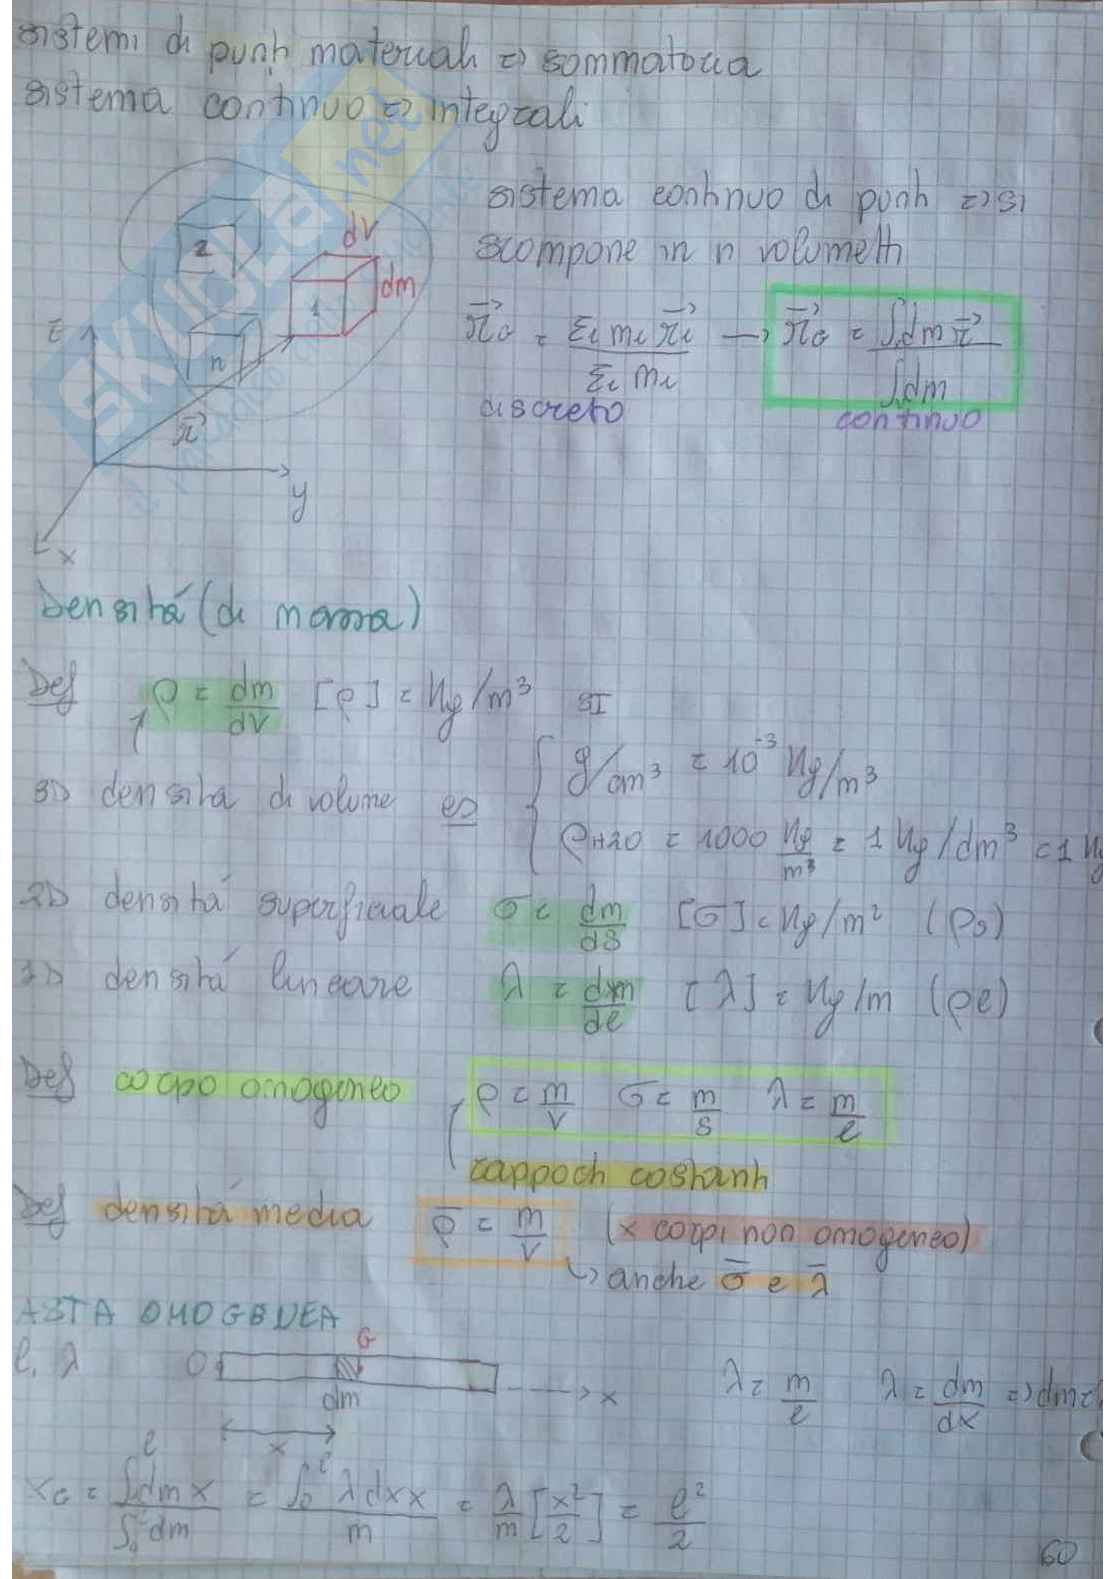 sistemi di punti materiali => sommatoria
sistema continuo => integrali
sistema continuo di punti => si
scompone in n volumetti
z
2
1
n
dV
dm
r⃗
y
x
r⃗G = Σi mi r⃗i / Σi mi → r⃗G = ∫dm r⃗ / ∫dm
discreto
continuo
Densitá (di massa)
Def ρ = dm/dV [ρ] = Kg/m³ SI
3D densitá di volume es { g/cm³ = 10⁻³ Kg/m³
ρH2O = 1000 Kg/m³ = 1 Kg/dm³ = 1 Kg
2D densitá superficiale σ = dm/dS [σ] = Kg/m² (ρs)
1D densitá lineare λ = dm/dl [λ] = Kg/m (ρl)
Def corpo omogeneo ρ = m/V σ = m/S λ = m/l
rapporti costanti
Def densitá media ρ̄ = m/V (x corpi non omogeneo)
↳ anche σ̄ e λ̄
ASTA OMOGENEA
l, λ O G dm x x
λ = m/l λ = dm/dx => dm =
xG = ∫₀ˡ dm x / ∫₀ˡ dm = ∫₀ˡ λ dx x / m = λ/m [x²/2] = l²/2
60
SKUOLA.net
il paradiso dello studente